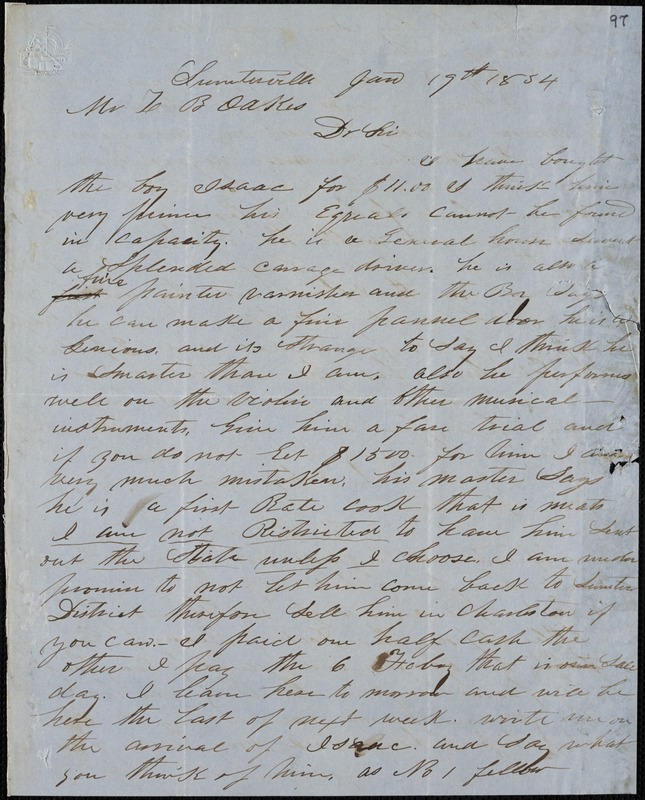 97
Sumterville Jany 19th 1854
Mr Z B Oakes
Dr Sir
I have bought
the boy Isaac for $1100 I think him
very prime his Equals cannot be found
in capacity. he is a General house servant
a splended carrage driver. he is also a
fine painter varnisher and the Boy Says
he can make a fine pannel door he is a
Genious. and its strange to say I think he
is smarter than I am. also he performs
well on the violin and other musical
instruments, Give him a fare trial and
if you do not Get $1500. for him I am
very much mistaken. his master Says
he is a first Rate cook that is meats
I am not Restricted to have him sent
out the State unless I choose. I am under
promise to not let him come back to Sumter
District therefore Sell him in Charleston if
you can.- I paid one half cash the
other I pay the 6 Feby that is our Sale
day. I leave here to morrow and will be
here the last of next week. write me on
the arrival of Isaac. and Say what
you think of him. as No 1 fellow